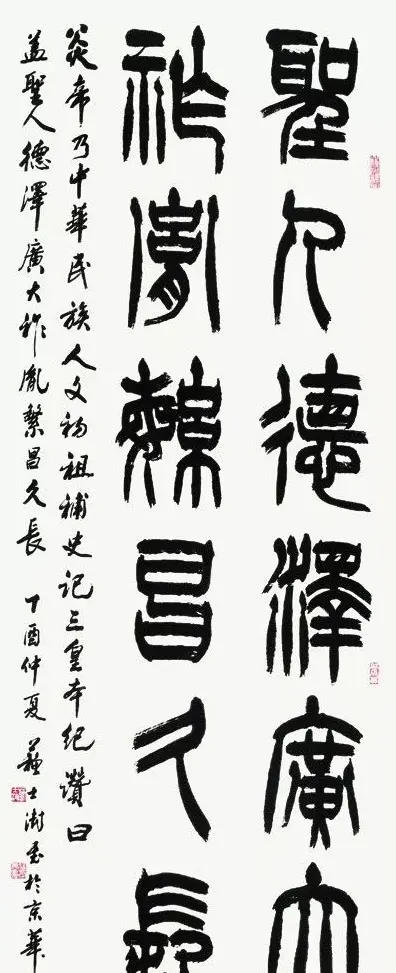 聖人德澤廣大
祚胤繁昌久長
炎帝乃中華民族人文初祖補史記三皇本紀讚曰
盖聖人德澤廣大祚胤繁昌久長 丁酉仲夏 蘇士澍書於京華